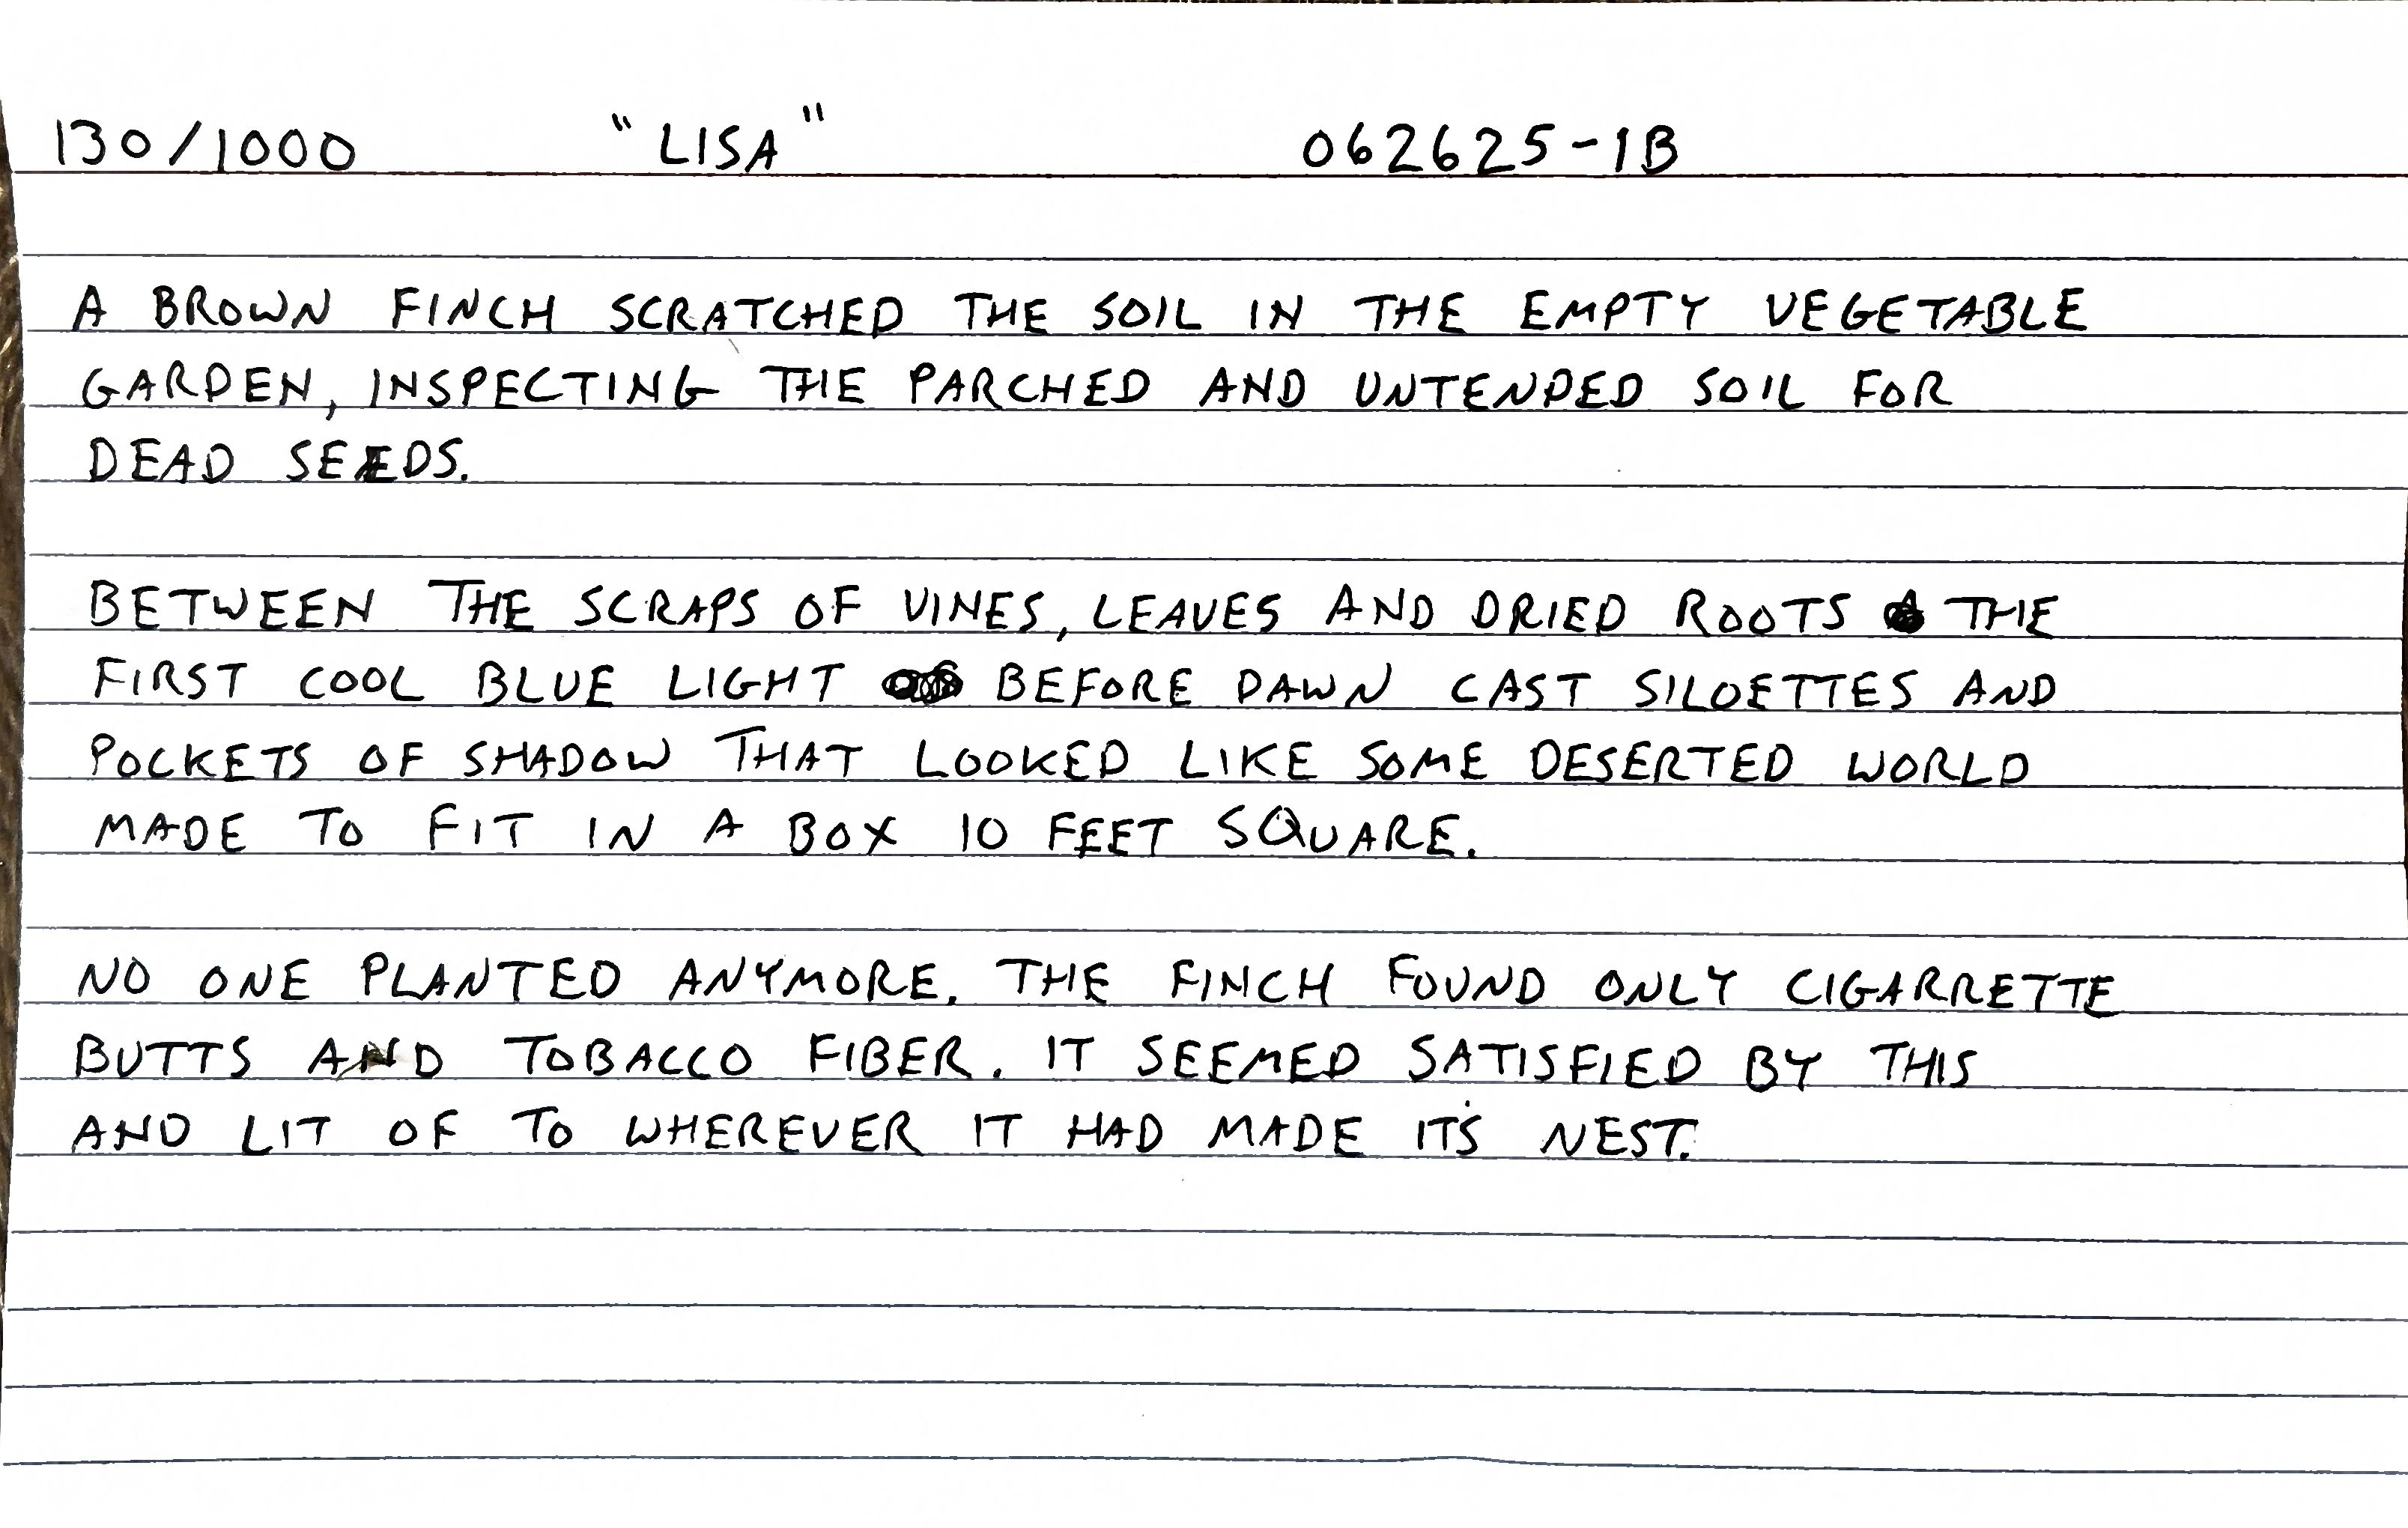 130/1000 "LISA" 062625-1B
A BROWN FINCH SCRATCHED THE SOIL IN THE EMPTY VEGETABLE
GARDEN, INSPECTING THE PARCHED AND UNTENDED SOIL FOR
DEAD SEEDS.
BETWEEN THE SCRAPS OF VINES, LEAVES AND DRIED ROOTS THE
FIRST COOL BLUE LIGHT BEFORE DAWN CAST SILOETTES AND
POCKETS OF SHADOW THAT LOOKED LIKE SOME DESERTED WORLD
MADE TO FIT IN A BOX 10 FEET SQUARE.
NO ONE PLANTED ANYMORE. THE FINCH FOUND ONLY CIGARRETTE
BUTTS AND TOBACCO FIBER. IT SEEMED SATISFIED BY THIS
AND LIT OF TO WHEREVER IT HAD MADE IT'S NEST.